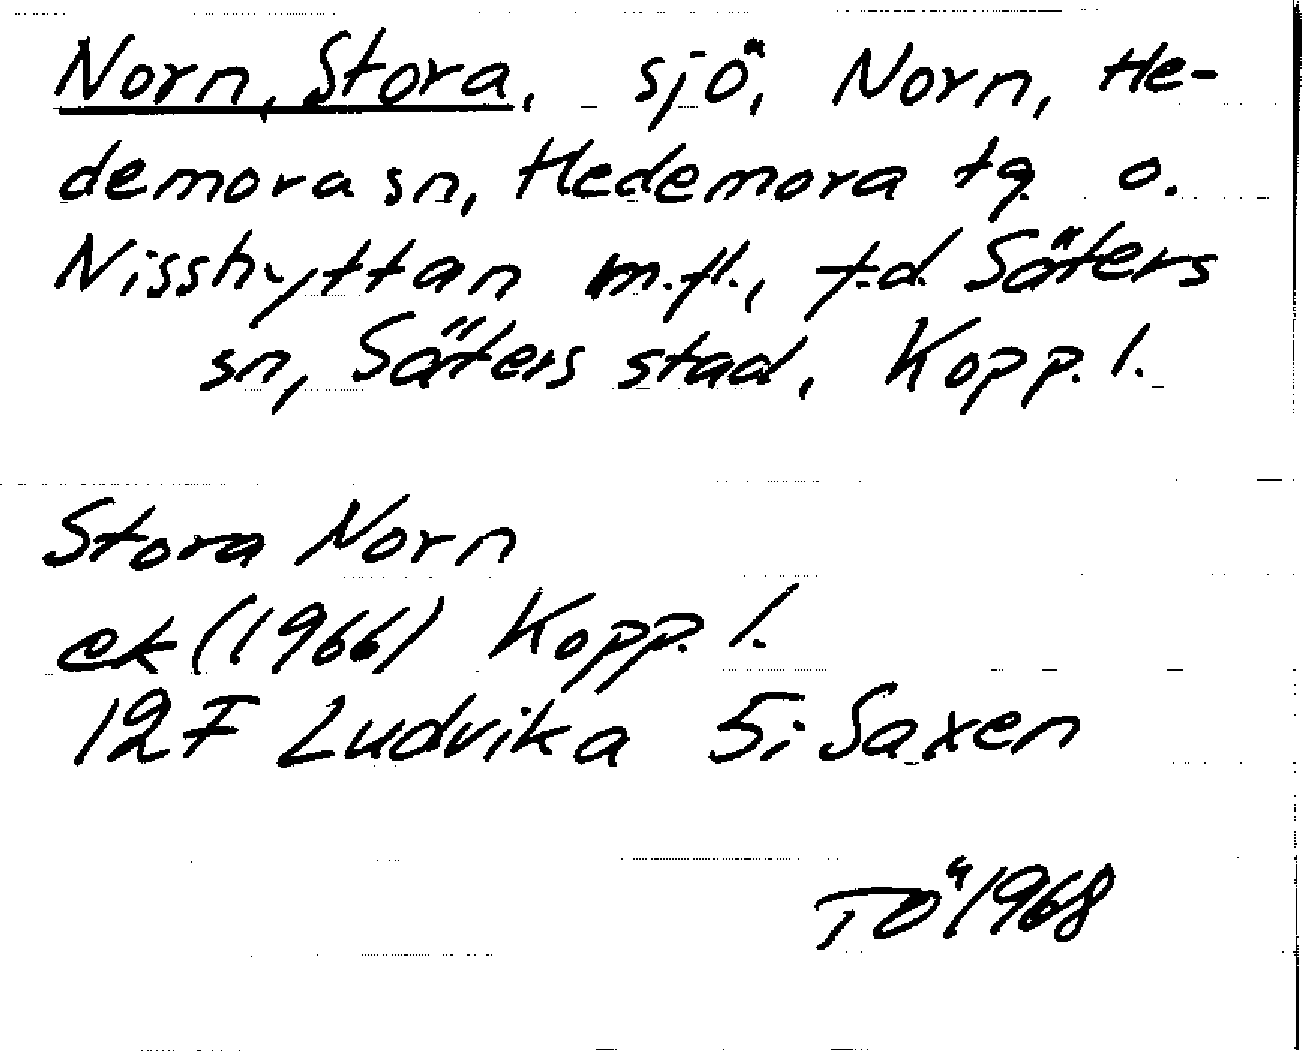 Norn, Stora, sjö, Norn, He-
demora sn, Hedemora tg o.
Nisshyttan m.fl., t.d. Säters
sn, Säters stad, Kopp. l.
Stora Norn
ek (1966) Kopp. l.
12F Ludvika 5i Saxen
TÖ 1968